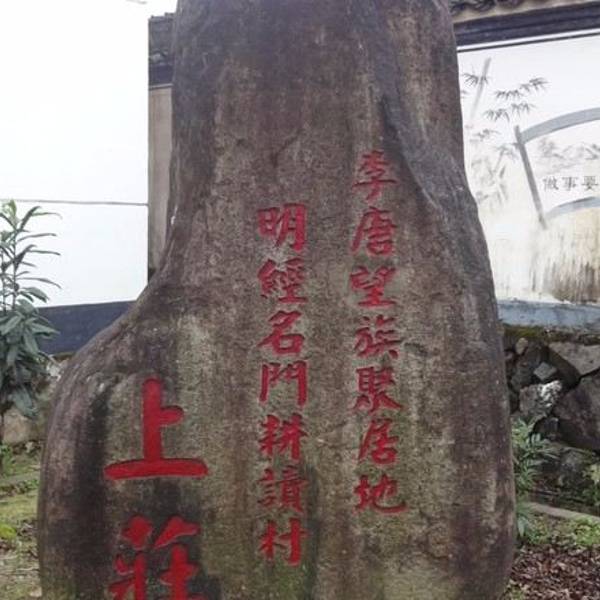 李唐望族聚居地
明經名門耕讀村
上莊
做事要